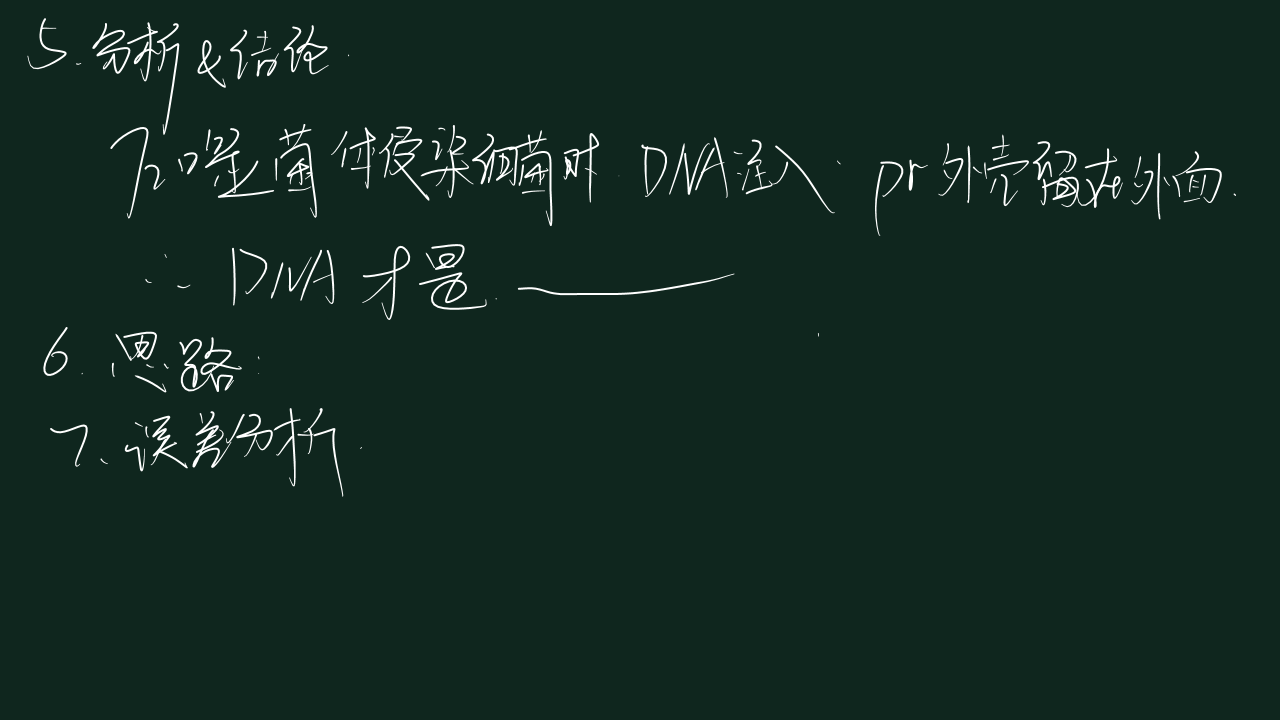 5.分析&结论.
T2噬菌体侵染细菌时.DNA注入.pr外壳留在外面.
∴DNA才是.______
6.思路:
7、误差分析.